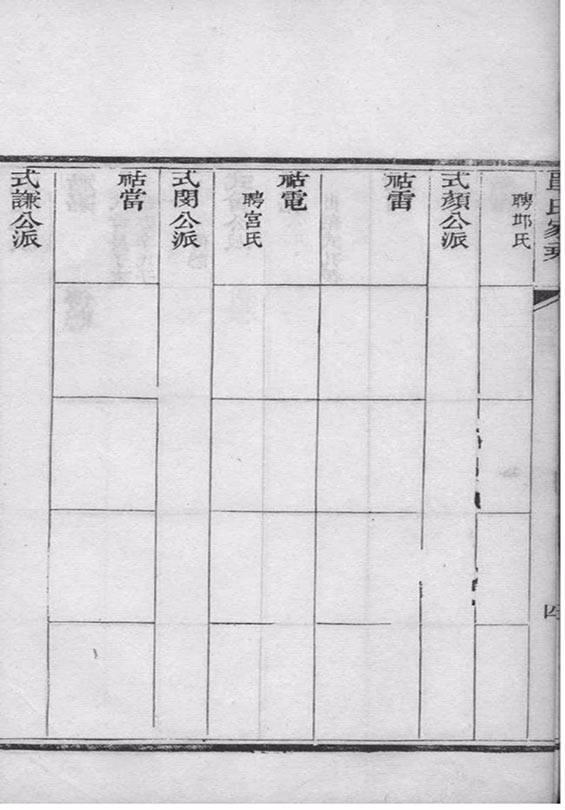 氏家乘
聘 氏
式顏公派
祜雷
祜電
聘宮氏
式閔公派
祜當
式謙公派